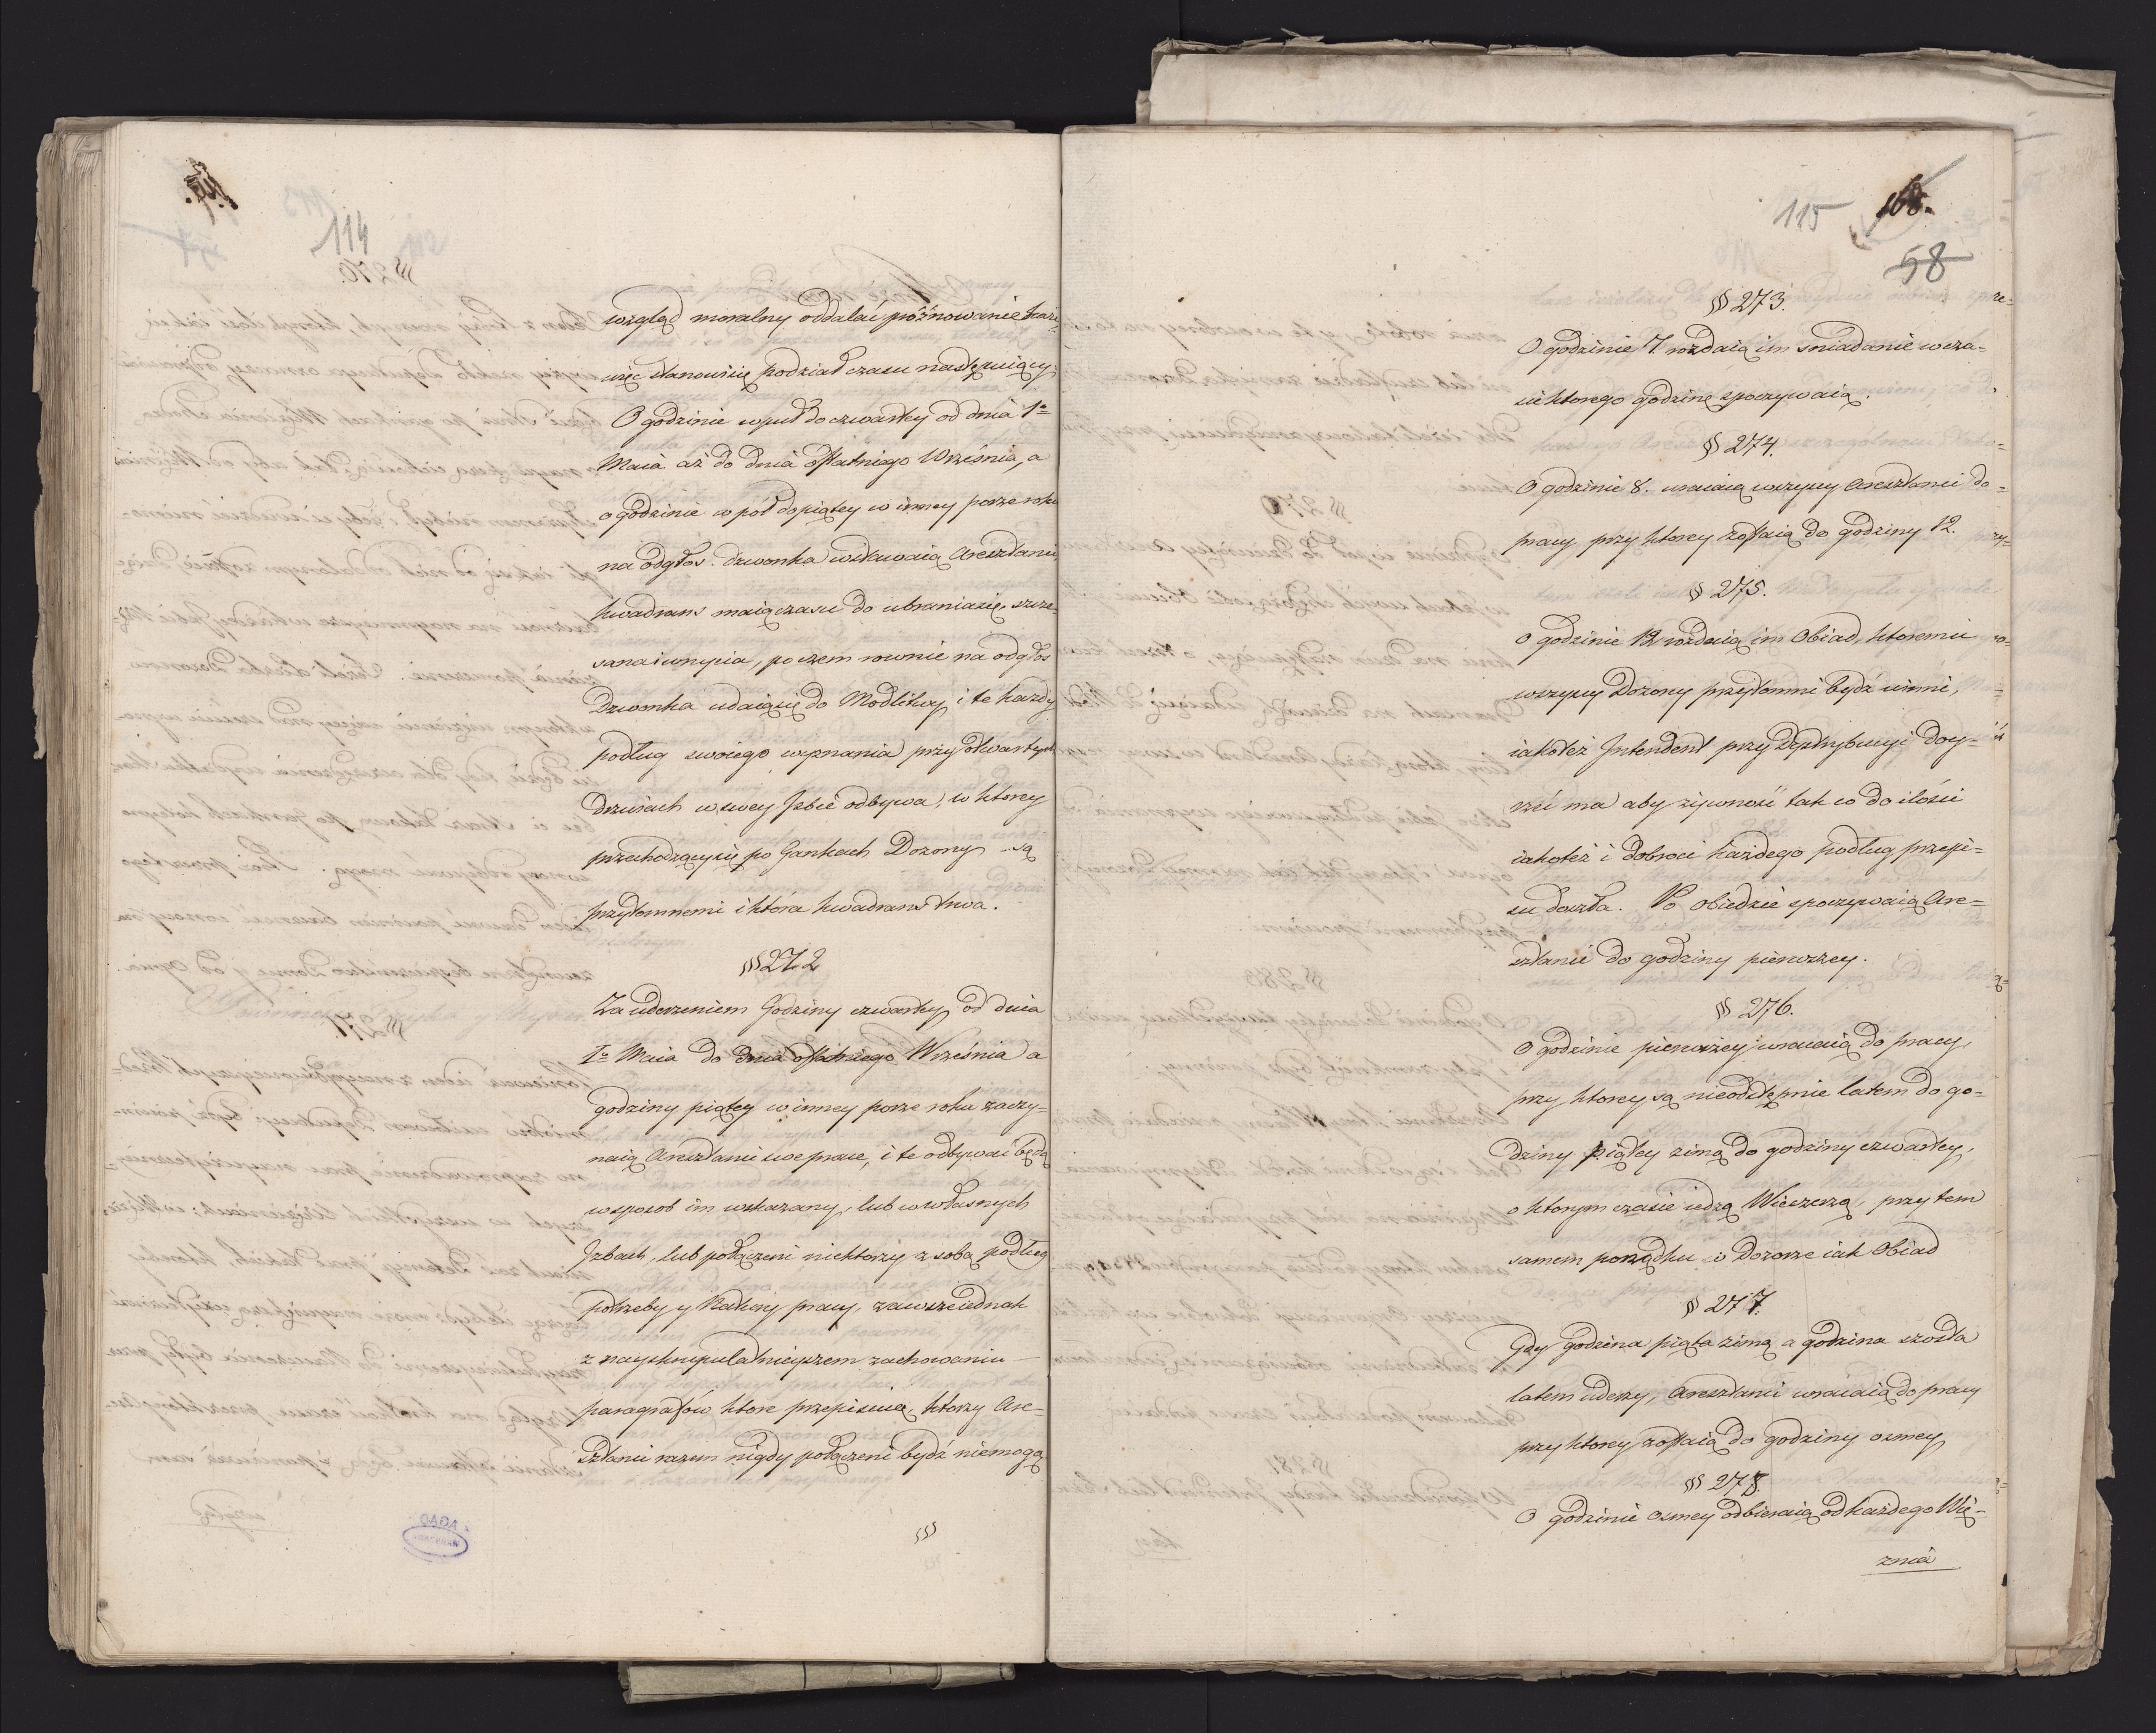 114
wzgląd moralny oddalać póżnowanie każe,
więc stanowisię podział czasu następuiący:
O godzinie wpuł do czwartey od dnia 1º
Maia aż do dnia ostatniego Września, a
o godzinie w pół do piątey w inney porze roku
na odgłos dzwonka wstawaią Aresztanci,
kwadrans maią czasu do ubraniasię, szcze-
sania i umycia, poczem rownie na odgłos
Dzwonka udaiąsię do Modlitwy, i te każdy
podług swoiego wyznania przy otwartych
drzwiach w swey Izbie odbywa, w ktorey
przechodzącysię po Gankach Dozorcy są
przytomnemi i która kwadrans trwa.
§§ 272
Za uderzeniem Godziny czwartey od dnia
1º Maia do dnia ostatniego Września a
godziny piątey w inney porze roku zaczy-
naią Aresztanci swe prace, i te odbywać będą
wsposob im wskazany, lub w własnych
Izbach, lub połączeni niektorzy z sobą podług
potrzeby y Natury pracy, zawsze iednak
z nayskrupulatnieyszem zachowaniu
paragrafów, ktore przepisuią, ktorzy Are-
sztanci razem nigdy połączeni bydź niemogą
§§§
115 168.
58
§§ 273.
O godzinie 7 rozdaią im sniadanie w cza-
sie ktorego godzinę spoczywaią.
§§ 274.
O godzinie 8. wracaią wszyscy Aresztanci do
pracy przy ktorey zostaią do godziny 12.
§ 275.
O godzinie 12 rozdaią im Obiad, ktoremu
wszyscy Dozorcy przytomni bydź winni,
iakoteż Intendent przy dystrybucyi doy-
rzeć ma aby żywność tak co do ilości
iakoteż i dobroci każdego podług przepi-
su doszła. Po obiedzie spoczywaią Are-
sztanci do godziny pierwszey.
§§ 276.
O godzinie pierwszey wracaią do pracy,
przy ktorey są nieodstępnie latem do go-
dziny piątey zimą do godziny czwartey,
o ktorym czasie iedzą Wieczerzą, przy tem
samem porządku i Dozorze iak Obiad
§ 277.
Gdy godzina piąta zimą a godzina szosta
latem uderzy, Aresztanci wracaią do pracy
przy ktorey zostaią do godziny osmey
§§ 278.
O godzinie osmey odbieraią od każdego Wię-
znia